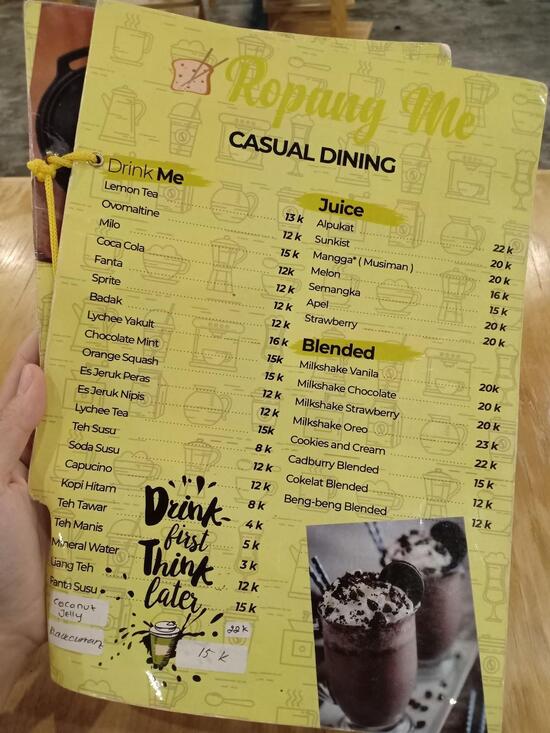 Ropang Me
CASUAL DINING
Drink Me
Lemon Tea 13 k
Ovomaltine 12 k
Milo 15 k
Coca Cola 12k
Fanta 12 k
Sprite 12 k
Badak 12 k
Lychee Yakult 16 k
Chocolate Mint 15k
Orange Squash 15 k
Es Jeruk Peras 12 k
Es Jeruk Nipis 12 k
Lychee Tea 15k
Teh Susu 8 k
Soda Susu 12 k
Capucino 12 k
Kopi Hitam 8 k
Teh Tawar 4 k
Teh Manis 5 k
Mineral Water 3 k
Liang Teh 12 k
Fanta Susu 15 k
coconut
Jelly 22k
15 k
Drink
first
Think
later
Juice
Alpukat 22 k
Sunkist 20 k
Mangga* ( Musiman ) 20 k
Melon 16 k
Semangka 15 k
Apel 20 k
Strawberry 20 k
Blended
Milkshake Vanila 20k
Milkshake Chocolate 20 k
Milkshake Strawberry 20 k
Milkshake Oreo 23 k
Cookies and Cream 22 k
Cadburry Blended 15 k
Cokelat Blended 12 k
Beng-beng Blended 12 k